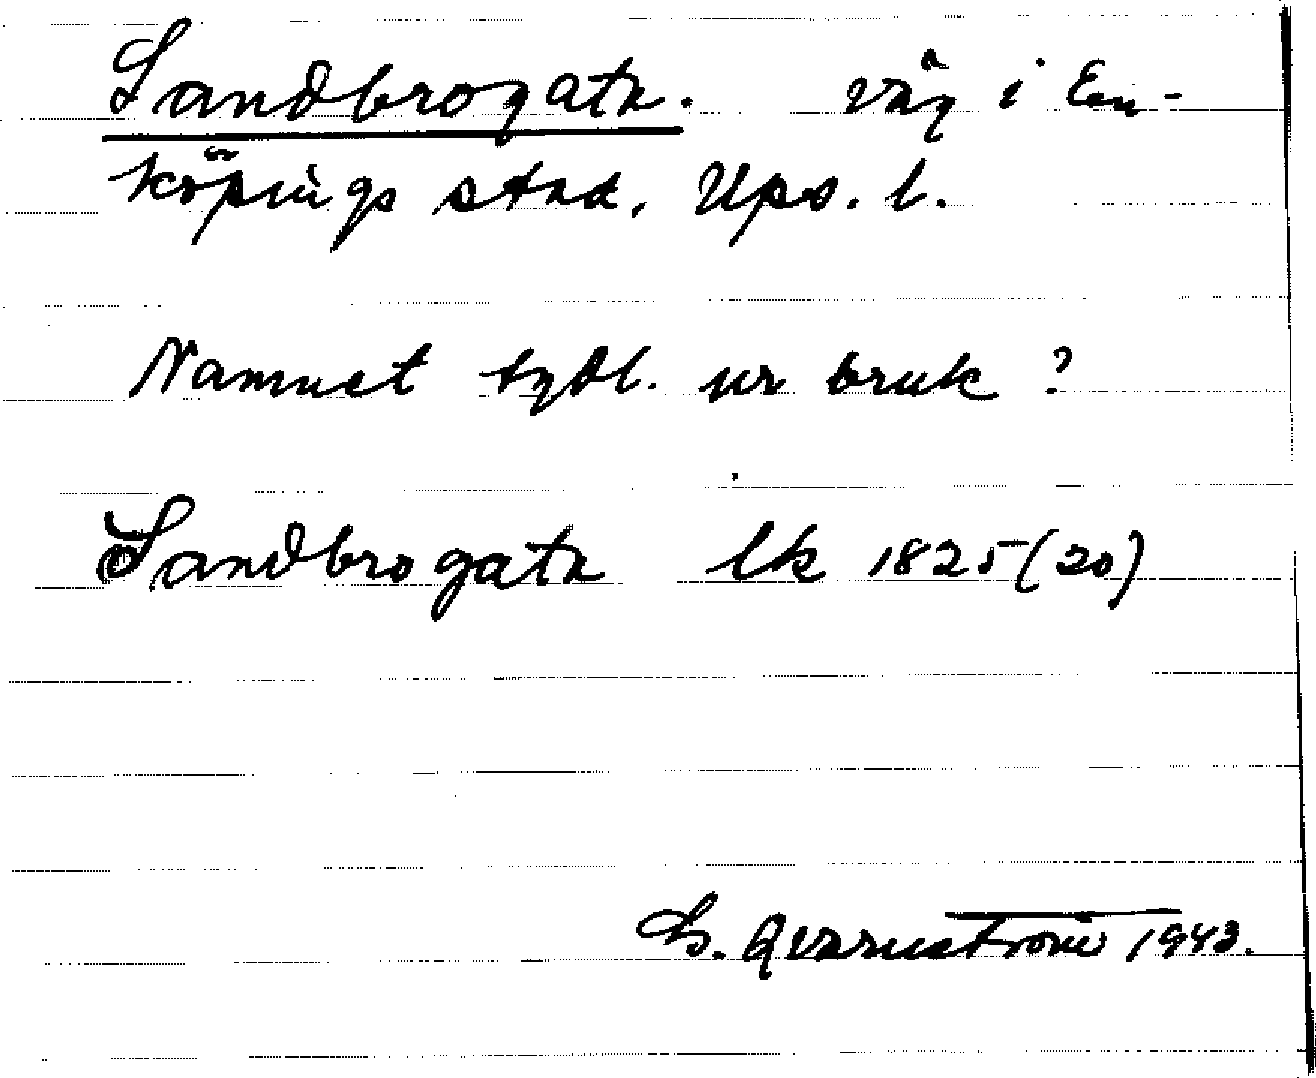 Sandbrogata. väg i En-
köpings stad, Ups. l.
Namnet tydl. ur bruk?
Sandbrogata lk 1825(20)
Qvarnström 1943.